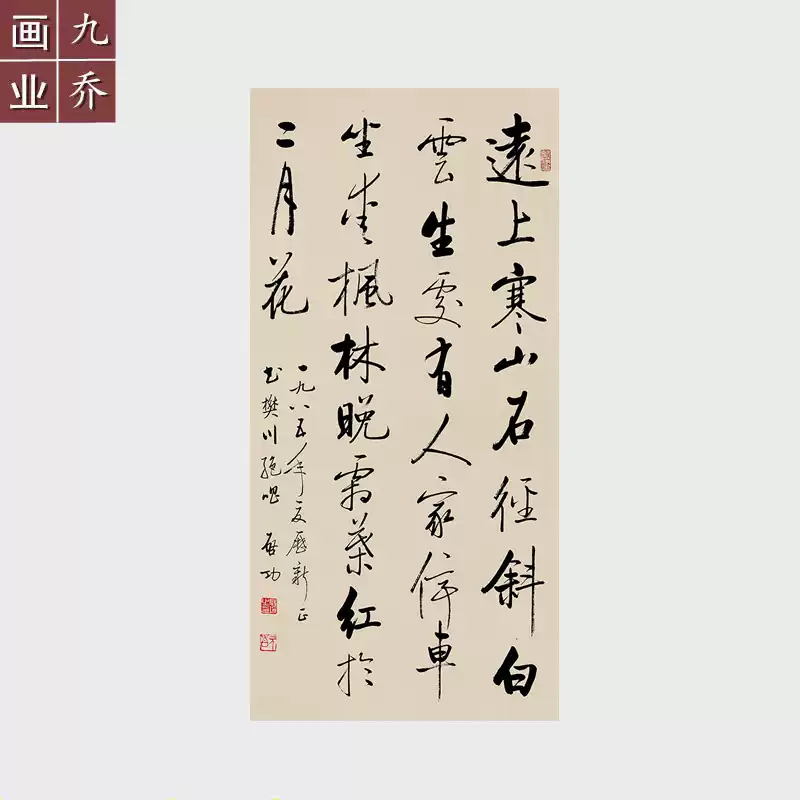 九乔
画业
遠上寒山石徑斜白
雲生處有人家停車
坐愛楓林晚霜葉紅於
二月花
一九八五年夏歷新正
書樊川絕唱 啟功